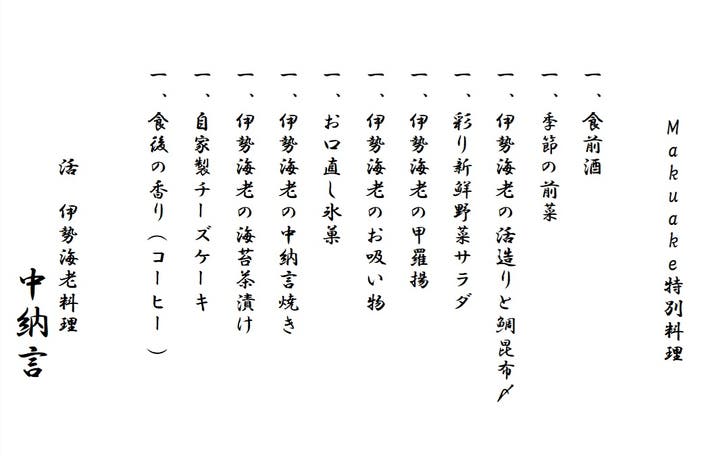 Makuake特別料理
一、食前酒
一、季節の前菜
一、伊勢海老の活造りと鯛昆布〆
一、彩り新鮮野菜サラダ
一、伊勢海老の甲羅揚
一、伊勢海老のお吸い物
一、お口直し氷菓
一、伊勢海老の中納言焼き
一、伊勢海老の海苔茶漬け
一、自家製チーズケーキ
一、食後の香り（コーヒー）
活　伊勢海老料理
中納言